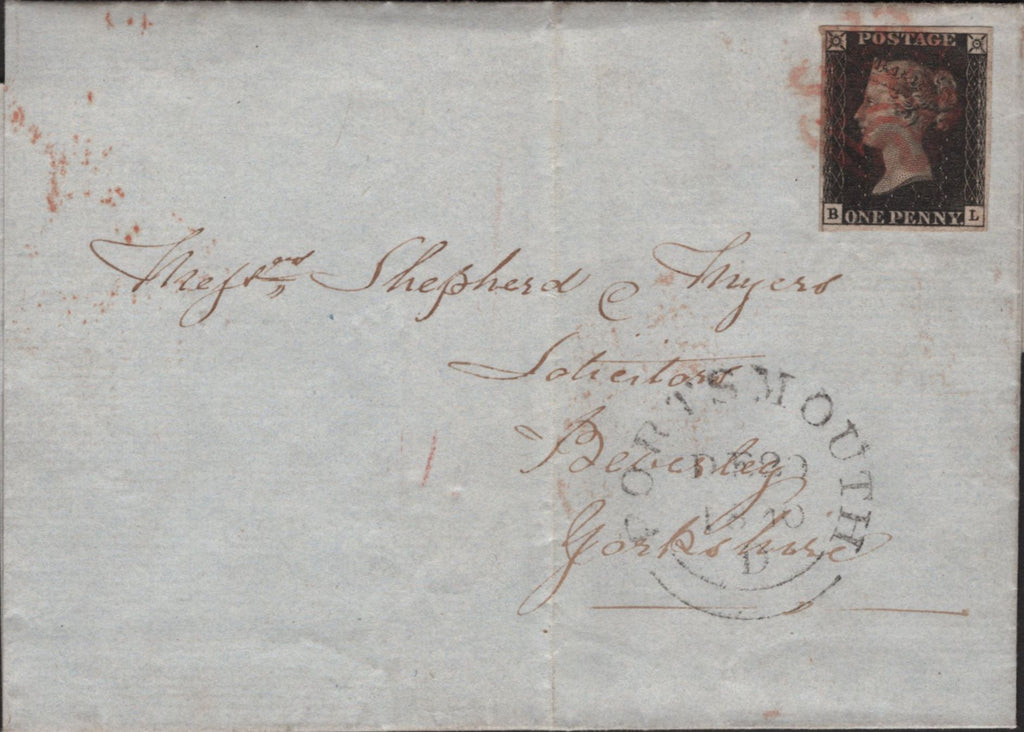 POSTAGE
B ONE PENNY. L
Messrs Shepherd & Myers
Solicitors
Beverley
Yorkshire
PORTSMOUTH
1840
D